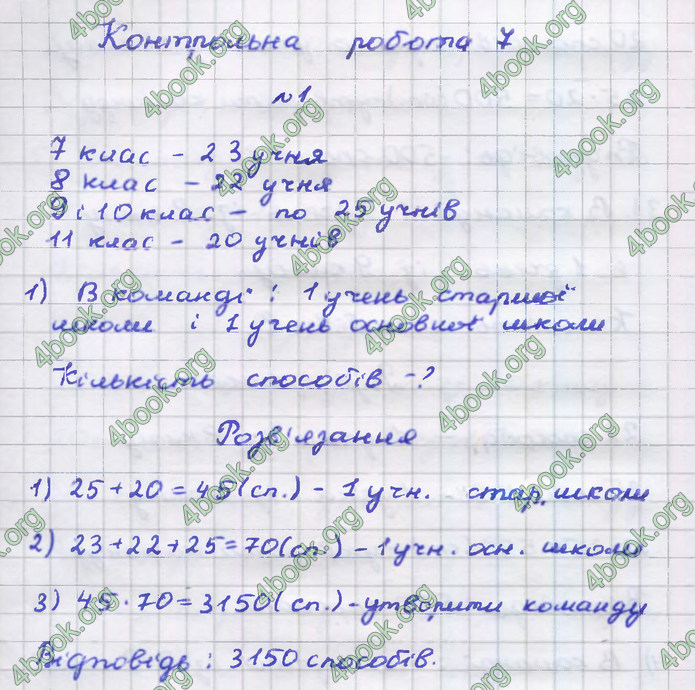 Контрольна робота 7
№1
7 клас - 23 учня
8 клас - 22 учня
9 і 10 клас - по 25 учнів
11 клас - 20 учнів
1) В команді: 1 учень старшої
школи і 1 учень основної школи
Кількість способів - ?
Розв'язання
1) 25 + 20 = 45 (сп.) - 1 учн. стар. школи
2) 23 + 22 + 25 = 70 (сп.) - 1 учн. осн. школи
3) 45 · 70 = 3150 (сп.) - утворити команду
Відповідь: 3150 способів.
4book.org